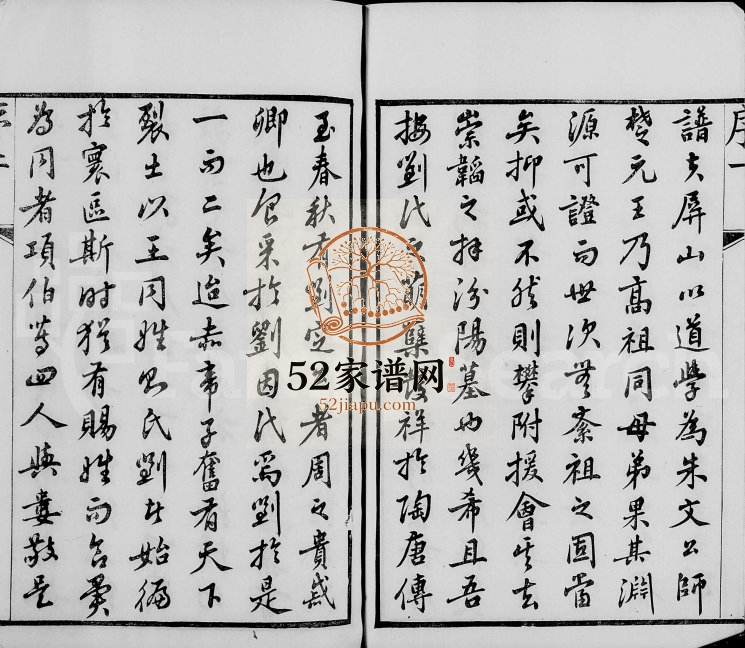 序一
譜夫屏山以道學為朱文公師
楚元王乃高祖同母弟果其淵
源可證而世次無紊祖之固當
矣抑或不然則攀附援會其去
崇韜之拜汾陽墓也幾希且吾
按劉氏之萠櫱發祥於陶唐傳
至春秋有劉定 者周之貴戚
卿也食采於劉因氏焉劉於是
一而二矣迨赤帝子奮有天下
裂土以王同姓則氏劉者始徧
於寰區斯時猶有賜姓而合異
為同者項伯等四人與婁敬是
52家谱网
52jiapu.com